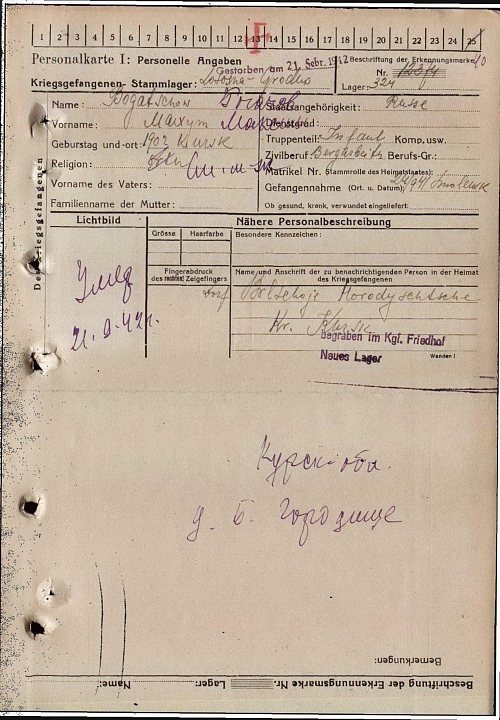 1 2 3 4 5 6 7 8 9 10 11 12 13 14 15 16 17 18 19 20 21 22 23 24 25
Personalkarte I: Personelle Angaben
Gestorben am 21. Febr. 1942
Beschriftung der Erkennungsmarke
Nr.
Kriegsgefangenen-Stammlager: Lososna-Grodno
Lager: 324
Des Kriegsgefangenen
Name: Bogatschow
Staatsangehörigkeit: Russe
Vorname: Maxym
Dienstgrad:
Truppenteil: Infant Komp. usw.
Geburtstag und -ort: 1902 Kursk
Zivilberuf: Berufs-Gr.:
Religion:
Matrikel Nr. (Stammrolle des Heimatstaates):
Vorname des Vaters:
Gefangennahme (Ort u. Datum): Smolensk
Familienname der Mutter:
Ob gesund, krank, verwundet eingeliefert:
Lichtbild
Nähere Personalbeschreibung
Grösse
Haarfarbe
Besondere Kennzeichen:
Fingerabdruck
des rechten! Zeigefingers
Name und Anschrift der zu benachrichtigenden Person in der Heimat
des Kriegsgefangenen
Dorf Bolschoje Horodyschtsche
Kr. Kursk
Begraben im Kgl. Friedhof
Neues Lager
Wenden!
Умер
Курск-обл.
д. Б. Городище
Bemerkungen:
Name: Lager: Beschriftung der Erkennungsmarke Nr.